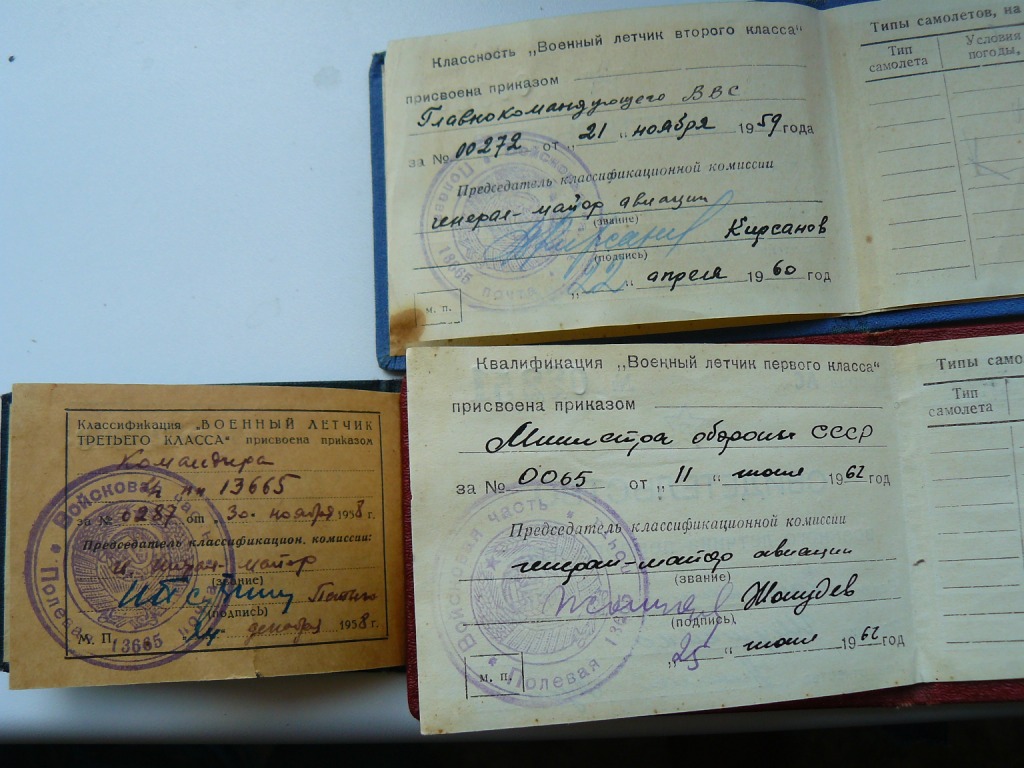 Классность „Военный летчик второго класса“
присвоена приказом
Главнокомандующего ВВС
за № 00272 от „21“ ноября 1959 года
Председатель классификационной комиссии
генерал-майор авиации
(звание)
Кирсанов
(подпись)
„22“ апреля 1960 год
м. п.
Типы самолетов, на
Тип самолета
Условия погоды,
Квалификация „Военный летчик первого класса“
присвоена приказом
Министра обороны СССР
за № 0065 от „11“ июня 1962 года
Председатель классификационной комиссии
генерал-майор авиации
(звание)
Жолудев
(подпись)
„25“ июня 1962 год
м. п.
Войсковая часть * Полевая
Типы само
Тип самолета
Классификация „ВОЕННЫЙ ЛЕТЧИК
ТРЕТЬЕГО КЛАССА“ присвоена приказом
Командира
13665
за № 0287 от „30“ ноября 1958 г.
Председатель классификацион. комиссии:
майор
(звание)
(подпись)
М. П. декабря 1958 г.
13665